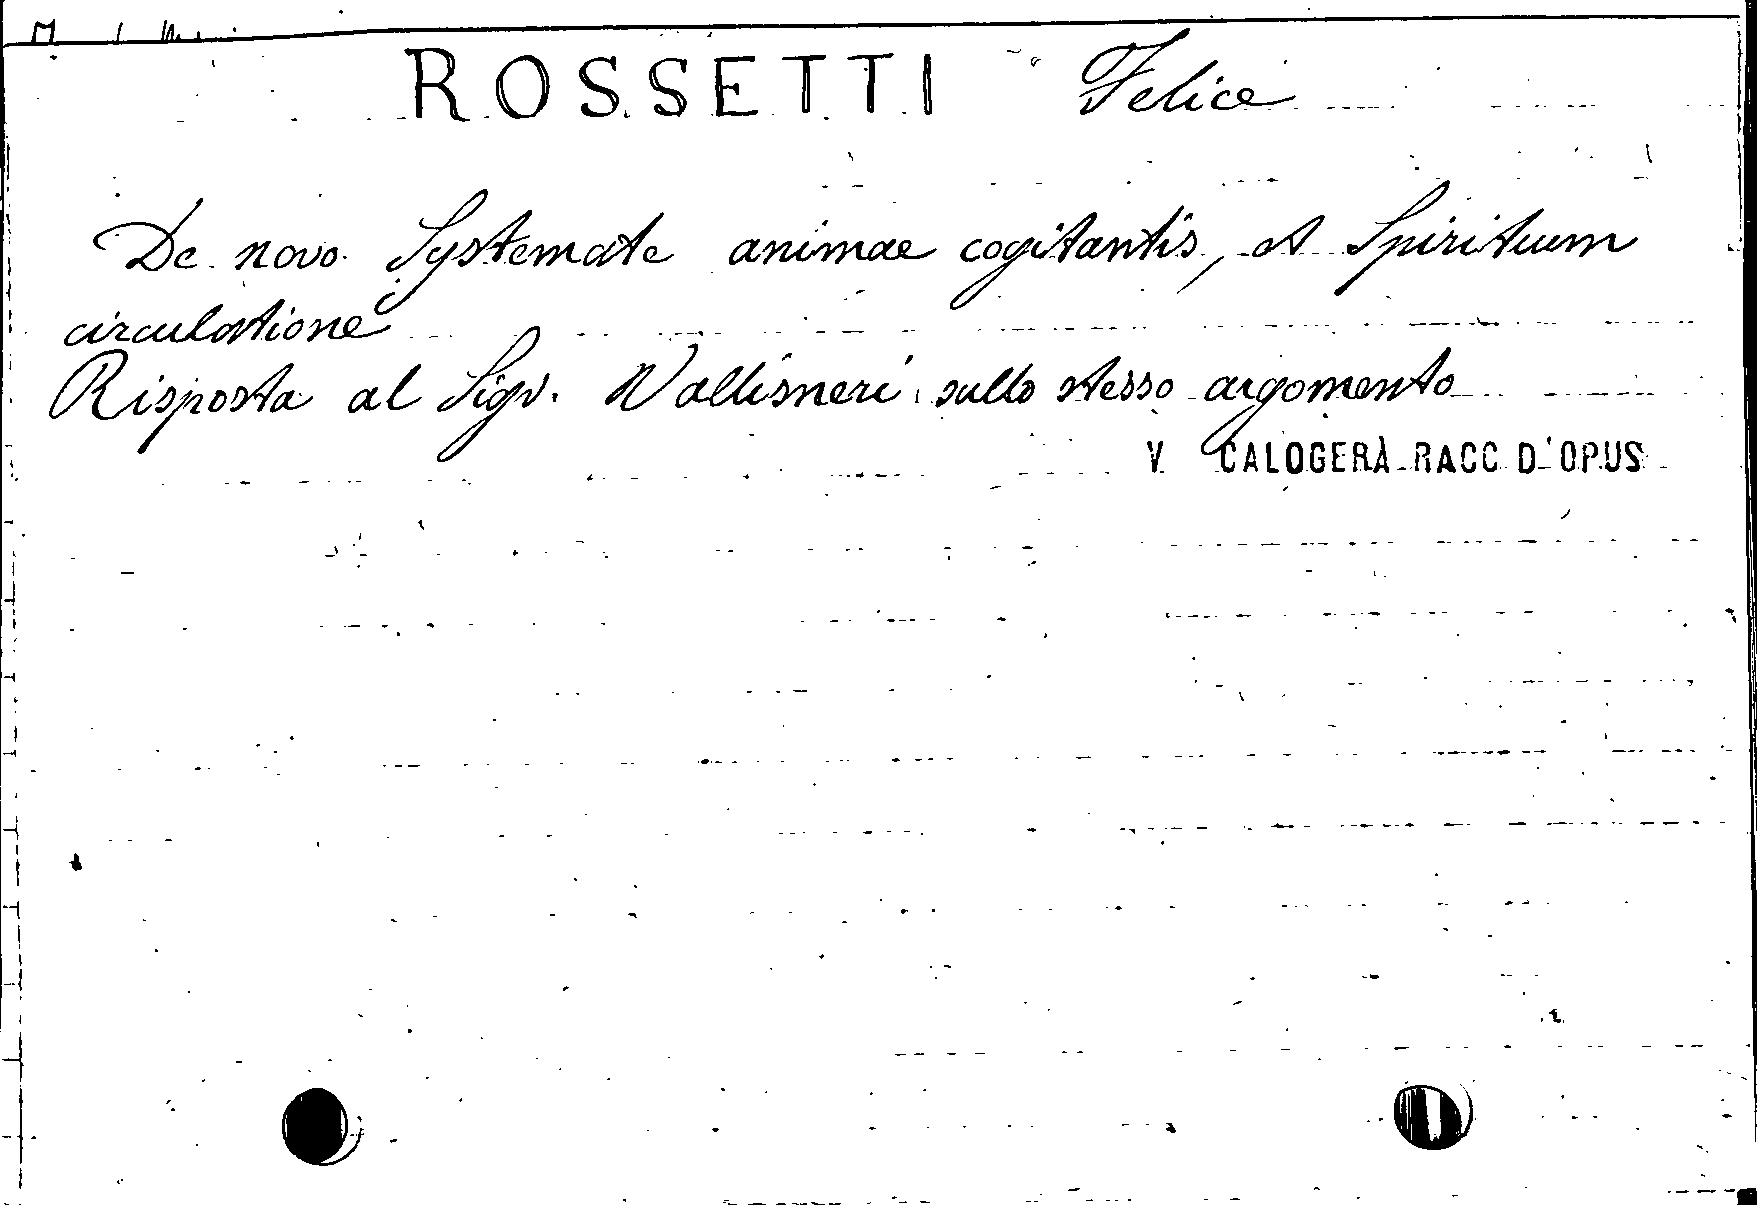 ROSSETTI Felice
De novo Systemate animae cogitantis, et Spirituum
circulatione
Risposta al Sigr. Vallisneri sullo stesso argomento
V. CALOGERÀ RACC D'OPUS